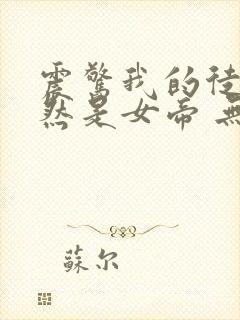 震驚我的徒
然是女帝 無
蘇尔